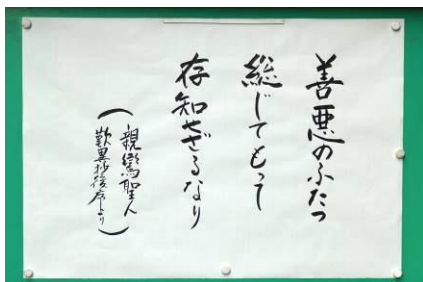 善悪のふたつ
総じてもって
存知せざるなり
(親鸞聖人
歎異抄後序より)